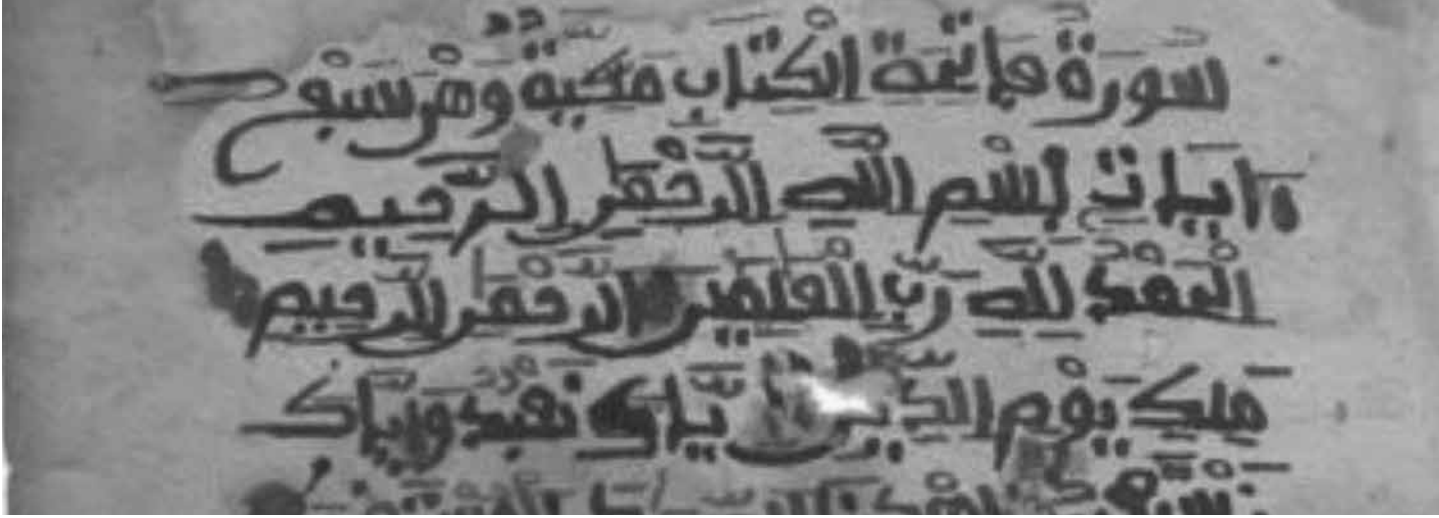 سُورَةُ فَاتِحَةِ الْكِتَابِ مَكِّيَّةٌ وَهْيَ سَبْعُ
ءَايَاتٍ بِسْمِ اللَّهِ الرَّحْمَٰنِ الرَّحِيمِ
الْحَمْدُ لِلَّهِ رَبِّ الْعَٰلَمِينَ الرَّحْمَٰنِ الرَّحِيمِ
مَلِكِ يَوْمِ الدِّينِ إِيَّاكَ نَعْبُدُ وَإِيَّاكَ